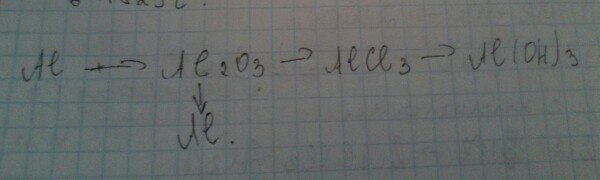 Al → Al2O3 → AlCl3 → Al(OH)3
↓
Al.